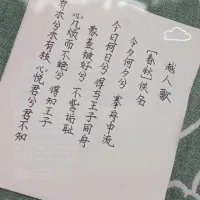 越人歌
[春秋] 佚名
今夕何夕兮 搴舟中流
今日何日兮 得与王子同舟
蒙羞被好兮 不訾诟耻
心几烦而不绝兮 得知王子
有木兮木有枝 心悦君兮君不知